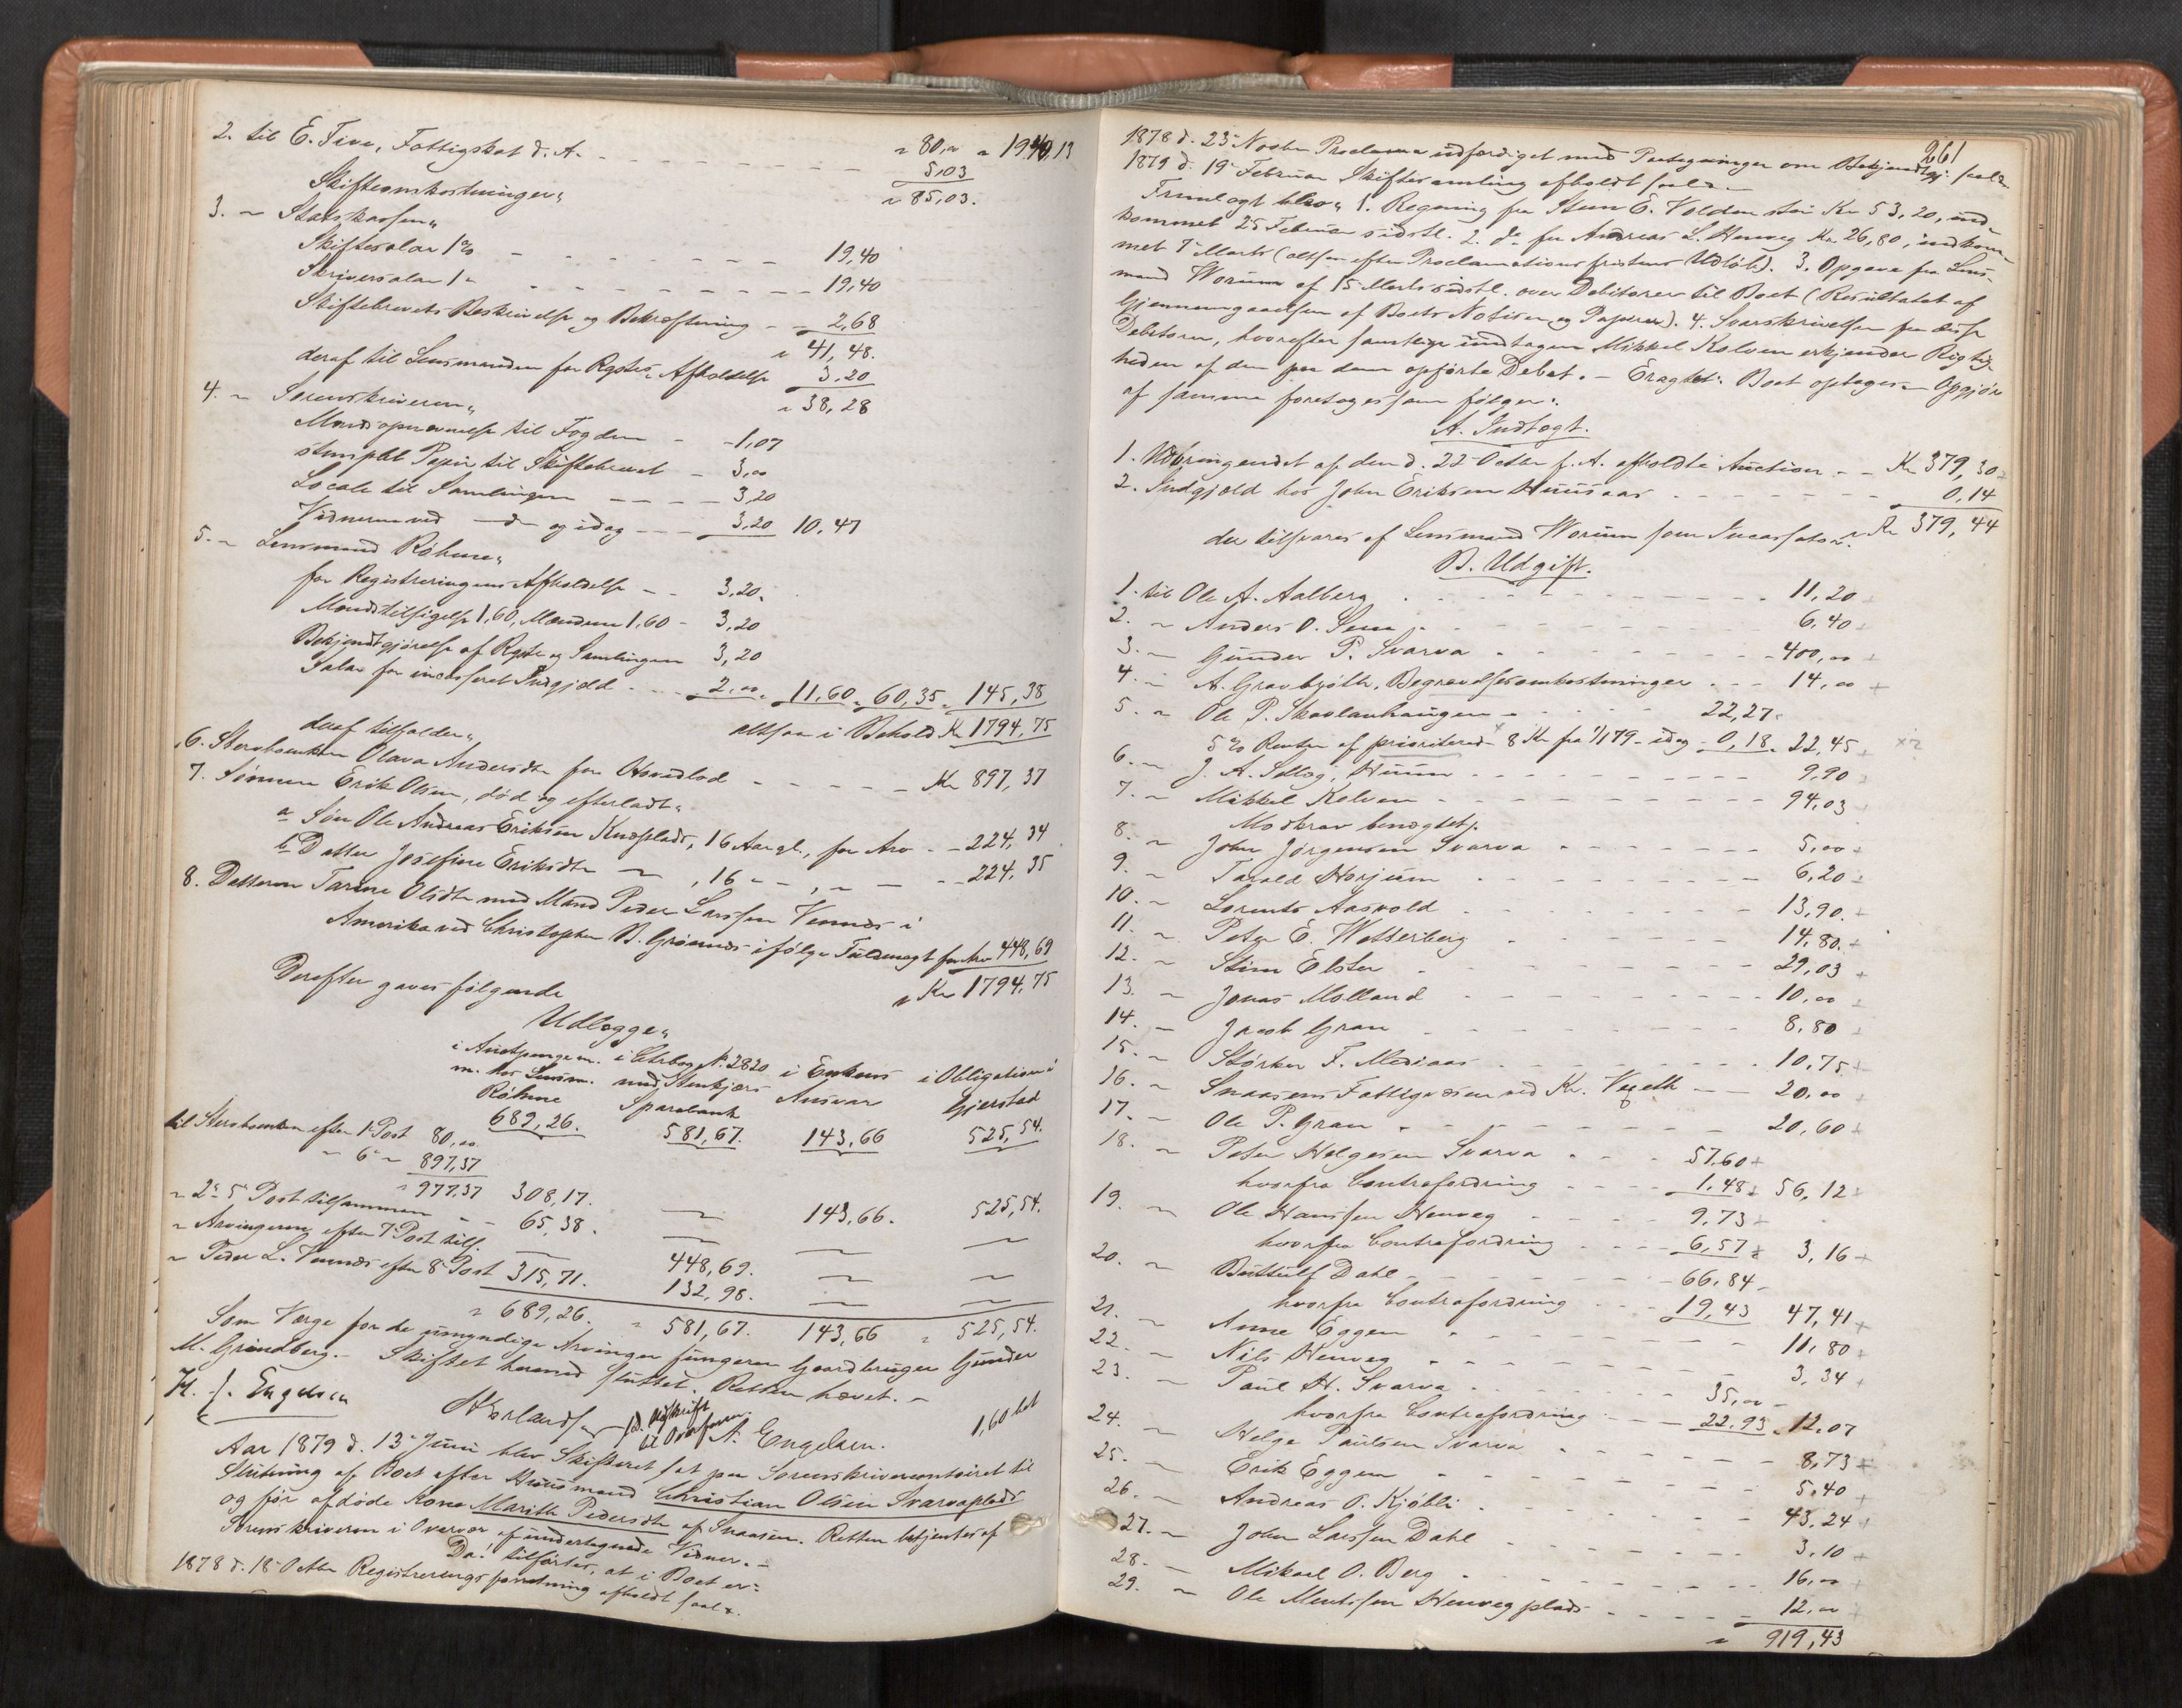 2. til E. Five, Fattigskat d. A. - - - " 80,00 " 1940,13
5,03
" 85,03.
Skifteomkostninger,
3. " Statskassen,
Skiftesalær 1% - - - 19,40
Skriversalær 1 " - - - 19,40
Skiftebrevets Beskrivelse og Bekræftning - - 2,68
" 41,48.
deraf til Lensmanden for Rgstr. Afholdelse 3,20
" 38,28
4. " Sorenskriveren,
Mandsopnævnelse til Fogden - - 1,07
stemplet Papir til Skiftebrevet - 3,00
Locale til Samlingen - - - 3,20
Vidnerne ved - d° og idag - - - 3,20 10,47
5. " Lensmand Røhme,
for Registreringens Afholdelse - - 3,20.
Mandstilsigelse 1,60, Mændene 1,60 - 3,20
Bekjendtgjørelse af Rgstr. og Samlingen 3,20
Salær for incasseret Indgjæld - - - 2,00 " 11,60 " 60,35 " 145,38
altsaa i Behold Kr 1794,75
deraf tilfalder,
6. Sterboenken Olava Andersdtr for Hovedlod - - - Kr 897,37
7. Sønnen Erik Olsen, død og efterladt,
a Søn Ole Andreas Eriksen Kneplads, 16 Aar gl., for Arv - - 224,34
b Datter Josefine Eriksdtr " , 16 " - , " - - - 224,35
8. Datteren Tarine Olsdtr med Mand Peder Larssen Vennes i
Amerika ved Christopher B. Grønnes ifølge Fuldmagt for Arv 448,69
" Kr 1794,75
Derefter gaves følgende
Udlægge,
i Auctpenge m. i Ctrbog N. 2820 i Enkens i Obligation i
m. hos Lensm. med Stenkjærs Ansvar Gjerstad
Røhme Sparebank
689,26. 581,67. 143,66 525,54.
til Sterboenken efter 1 Post 80,00
" 6 " 897,37
" 977,37 308,17. " 143,66. 525,54.
" 2 - 5 Post tilsammen - - 65,38. " " "
" Arvingerne efter 7 Post tils. " 448,69. " "
" Peder L. Vennes efter 8 Post 315,71. 132,98. " "
" 689,26. " 581,67. 143,66 " 525,54.
Som Værge for de umyndige Arvinger fungerer Gaardbruger Gunder
M. Grindberg. - Skiftet hermed sluttet. Retten hævet. -
H. J. Engelsen HErlandsen A. Engelsen. 1,60 bet
Aar 1879 d. 13 Juni blev Skifteret sat paa Sorenskrivercontoiret til
Slutning af Boet efter Huusmand Christian Olsen Svarvaplads
og før afdøde Kone Marith Pedersdtr af Snaasen. Retten betjentes af
Sorenskriveren i Overvær af undertegnede Vidner. -
Da! tilførtes, at i Boet er:
1878 d. 18 Octbr Registreringsforretning afholdt saal.
261
1878 d. 23 Novbr Proclama udfærdiget med Paategninger om Bekjendtgj. saal.
1879 d. 19 Februar Skiftesamling afholdt saal. -
Fremlagt blev, 1. Regning fra Steen E. Volden stor Kr 53,20, ind-
kommet 25 Februar sidstl. 2. d° fra Andreas L. Henveg Kr. 26,80, indkom-
met 7 Marts (altsaa efter Proclamationsfristens Udløb). 3. Opgave fra Lens-
mand Worum af 15 Marts sidstl. over Debitorer til Boet (Resultatet af
Gjennemgaaelsen af Boets Notiser og Papirer). 4. Svarskrivelser fra disse
Debitorer, hvorefter samtlige undtagen Mikkel Kolven erkjender Rigtig-
heden af den paa dem opførte Debet. - Eragtet: Boet optages. - Opgjør
af samme foretoges som følger:
A. Indtægt.
1. Udbringendet af den d. 22 Octbr f. A. afholdte Auction - - Kr 379,30
2. Indgjæld hos John Eriksen Huusaas - - - 0,14
der tilsvares af Lensmand Worum som Incassator. " Kr 379,44
B. Udgift.
1. til Ole A. Aalberg - - - 11,20
2. " Anders O. Sem - - - 6,40
3. " Gunder P. Svarva - - - 400,00
4. " A. Gravbrøth, Begravelsesomkostninger - - - 14,00
5. " Ole P. Skavlanhaugen - - 22,27
5% Renter af prioriterede 8 Kr fra 1/1 79 - idag - 0,18 " 22,45 x 2
6. " J. A. Selbog, Huum - - - 9,90
7. " Mikkel Kolven - - - 94,03
Modkrav benægtet.
8. " John Jørgensen Svarva - - - 5,00
9. " Tarald Horjum - - - 6,20
10. " Lorents Aasvold - - - 13,90
11. " Peter E. Wetterberg - - - 14,80
12. " Stine Elster - - - 29,03
13. " Jonas Molland - - - 10,00
14. " Jacob Gran - - - 8,80
15. " Størker F. Mediaas - - - 10,75
16. " Snaasens Fattigvæsen ved Kr. Vegeth - - 20,00
17. " Ole P. Gran - - - 20,60
18. " Peter Helgesen Svarva - - - 57,60
hvorfra Contrafordring - - - 1,48 56,12
19. " Ole Hanssen Henveg - - - 9,73
hvorfra Contrafordring - - - 6,57 3,16
20. " Buttulf Dahl - - - 66,84
hvorfra Contrafordring - - - 19,43 47,41
21. " Anne Eggen - - - 11,80
22. " Nils Henveg - - - 3,34
23. " Paul H. Svarva - - - 35,00
hvorfra Contrafordring - - - 22,93 " 12,07
24. " Helge Paulsen Svarva - - - 8,73
25. " Erik Eggen - - - 5,40
26. " Andreas O. Kjøbli - - - 43,24
27. " John Larssen Dahl - - - 3,10
28. " Mikael O. Berg - - - 16,00
29. " Ole Mentssen Henvegplads - - - 12,00
" 919,43